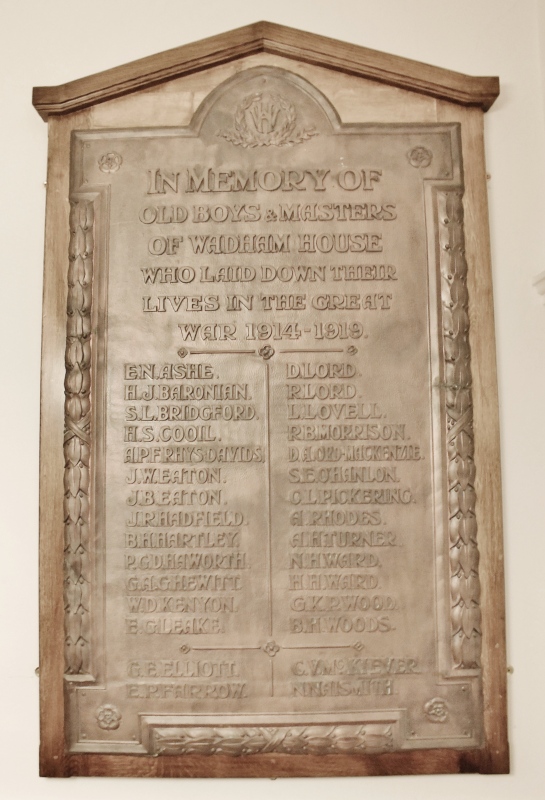 WH
IN MEMORY OF
OLD BOYS & MASTERS
OF WADHAM HOUSE
WHO LAID DOWN THEIR
LIVES IN THE GREAT
WAR 1914-1919.
E.N.ASHE.
H.J.BARONIAN.
S.L.BRIDGFORD.
H.S.COOIL.
A.P.F.RHYS DAVIDS.
J.W.EATON.
J.B.EATON.
J.R.HADFIELD.
B.H.HARTLEY.
P.G.D.HAWORTH.
G.A.G.HEWITT.
W.D.KENYON.
E.G.LEAKE.
D.LORD.
R.LORD.
L.LOVELL.
R.B.MORRISON.
S.E.O'HANLON.
C.L.PICKERING.
A.RHODES.
A.H.TURNER.
N.H.WARD.
H.H.WARD.
G.K.P.WOOD.
B.H.WOODS.
G.E.ELLIOTT.
E.P.FARROW.
C.V.McKIEVER
N.NAISMITH